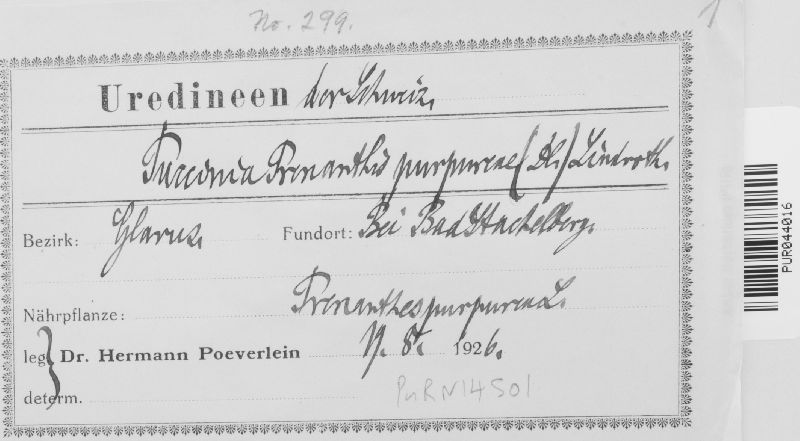 No. 299.
1
Uredineen der Schweiz.
Puccinia Prenanthis purpureae (DC.) Lindroth.
Bezirk: Glarus. Fundort: Bei Bad Stachelberg.
Nährpflanze: Prenanthes purpurea L.
leg. Dr. Hermann Poeverlein 8. 1926.
determ.
PURN14501
PUR044016